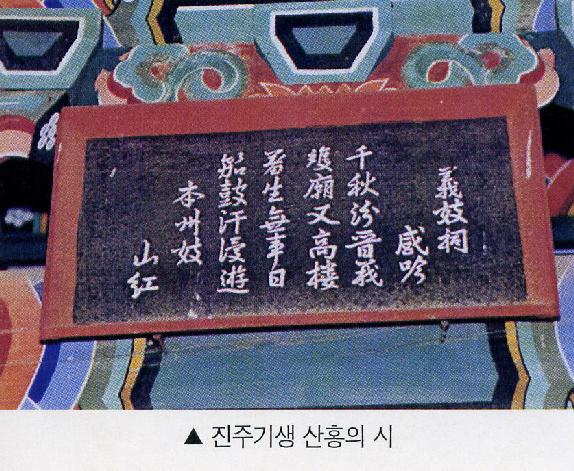 義妓祠
感吟
千秋汾晉義
雙廟又高樓
羞生無事日
鼓汗漫遊
本州妓
山紅
▲ 진주기생 산홍의 시